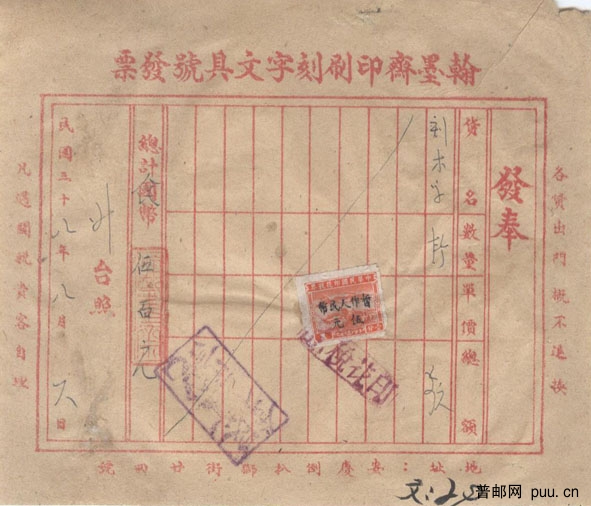 翰墨齋印刷刻字文具號發票
各貨出門概不退換
發奉
貨名數量單價總額
刻木字
總計國幣
伍百元
台照
民國三十八年八月六日
凡遇關稅貴客自理
暫作人民幣
伍元
地址：安慶倒扒獅街廿四號
普邮网 puu.cn